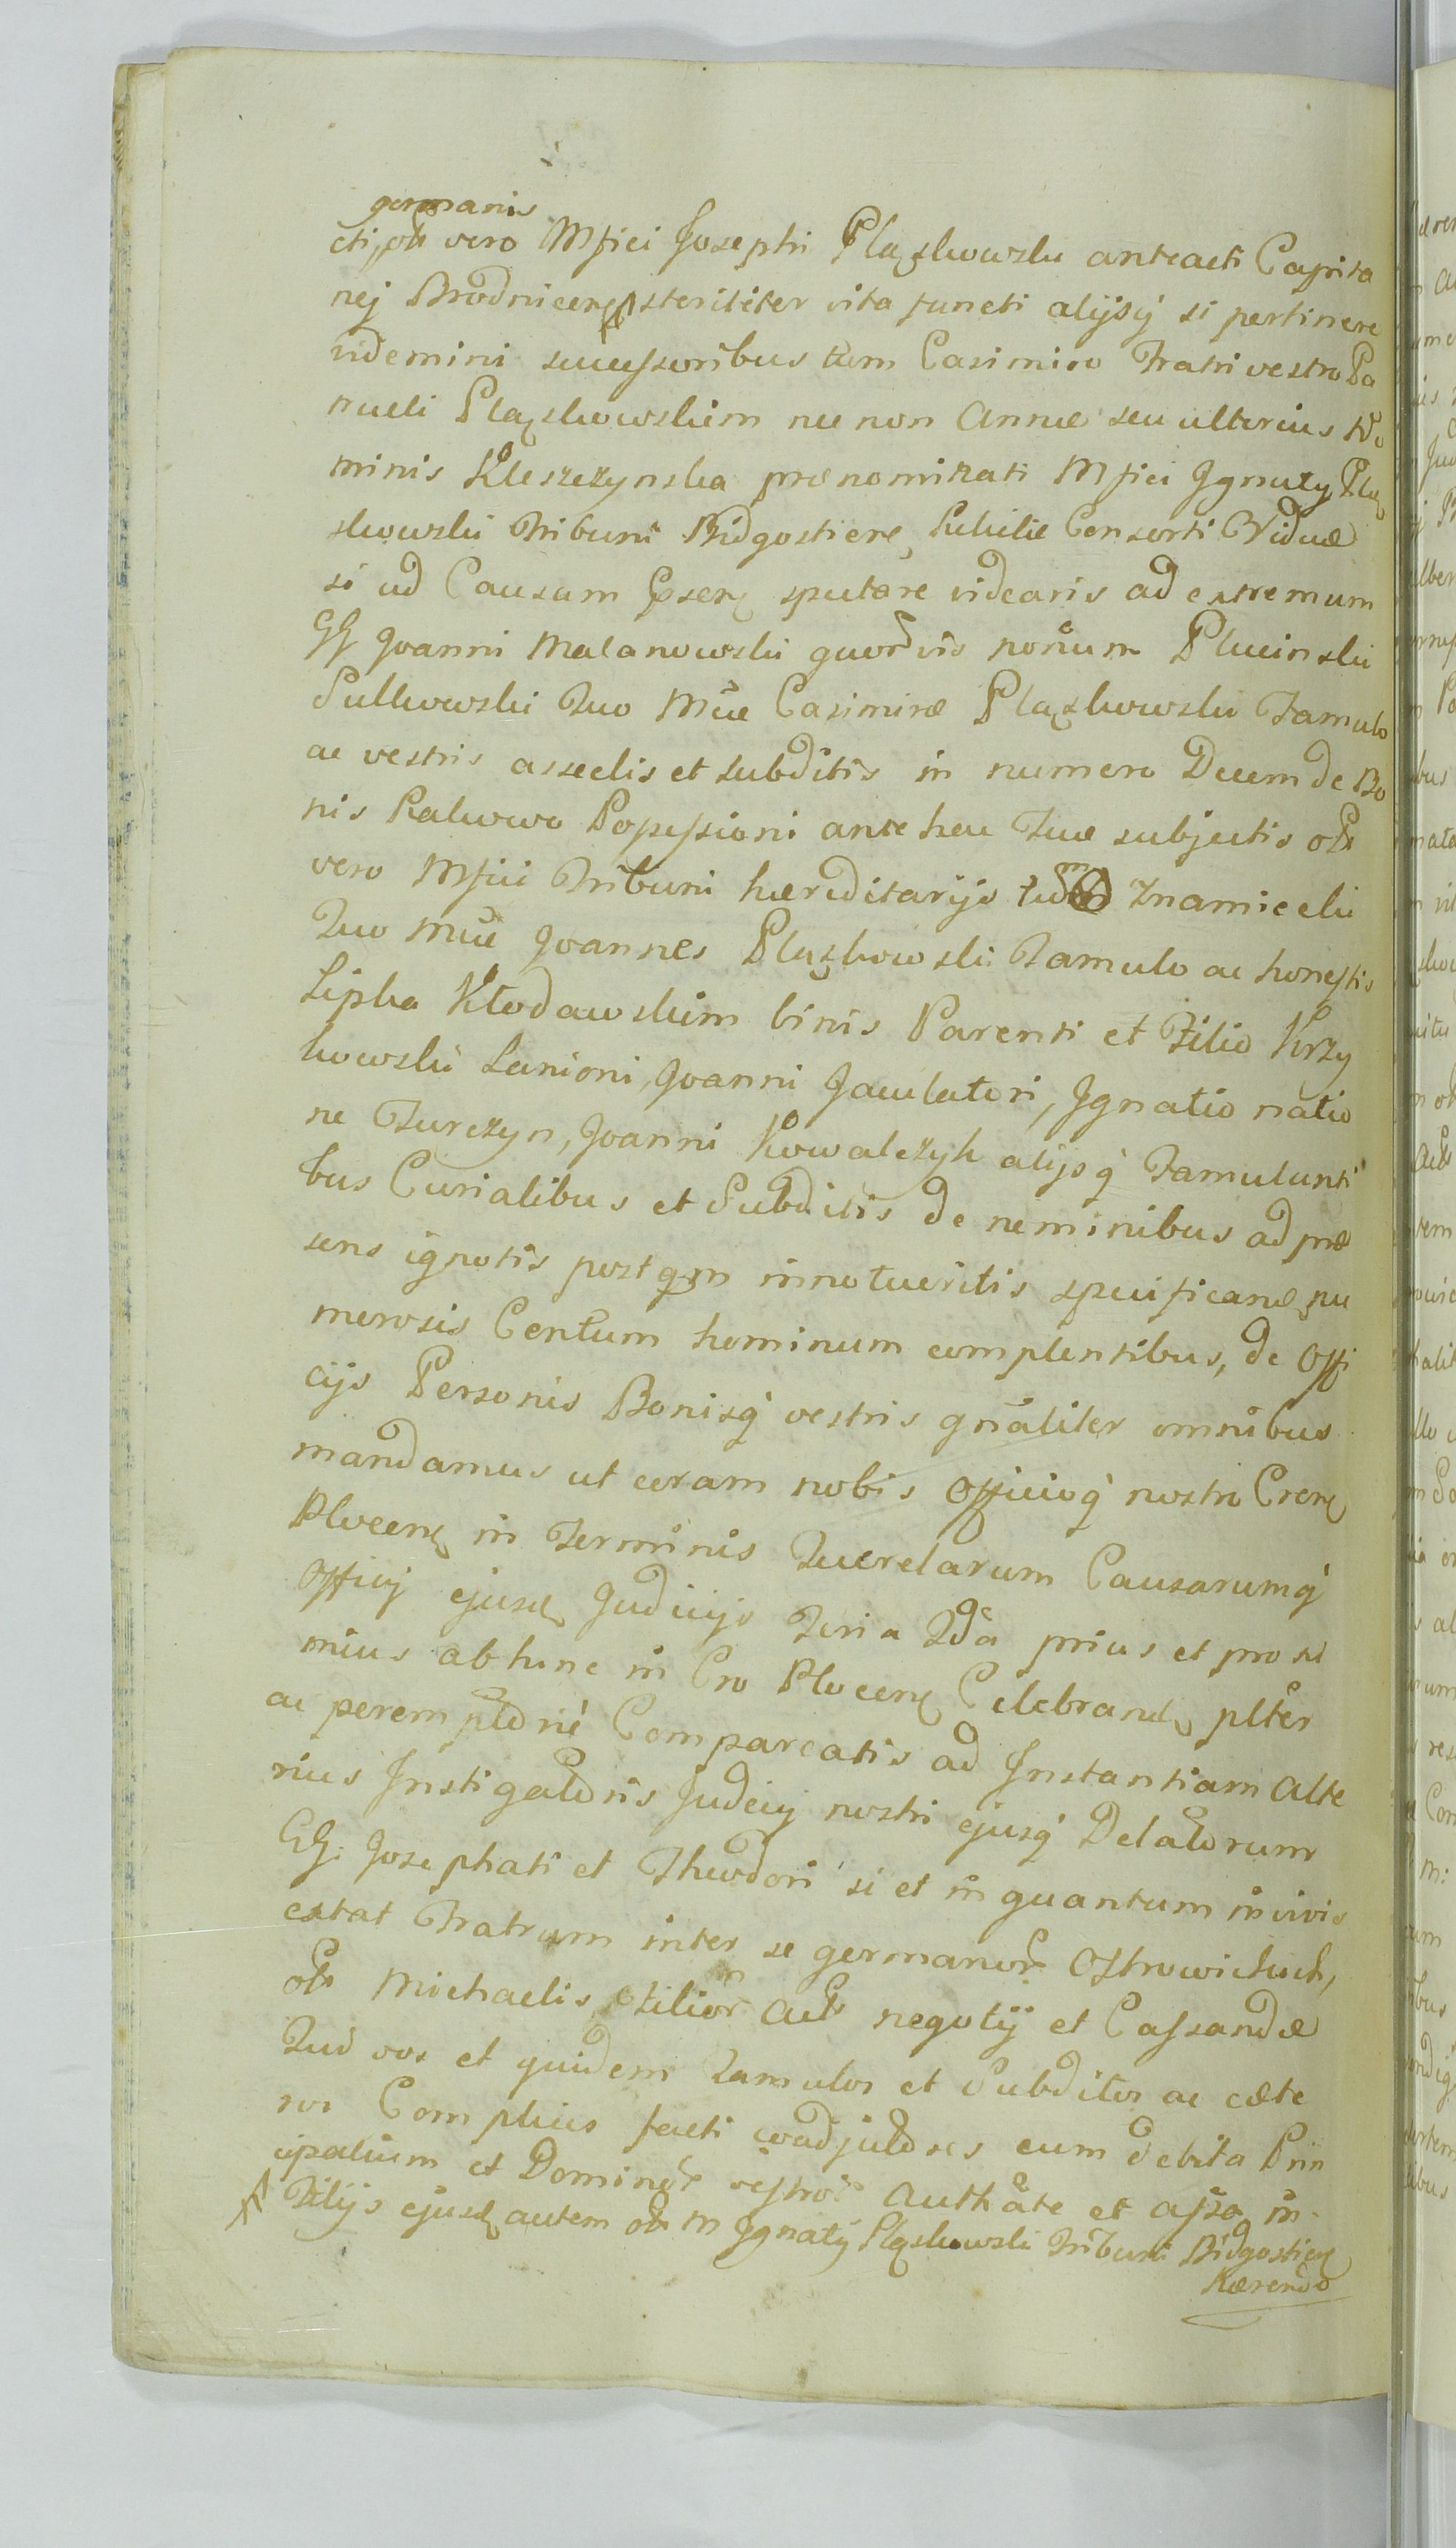 germanis
cti, olt vero Mfici Josephi Pląskowski anteacti Capita
nej Brodnicens steriliter vita functi alijsq si pertinere
videmini successoribus tum Casimiro Fratri vestro Pa
trueli Pląskowskim nec non Annæ seu ulterius No
minis Kleszczynska prænominati Mfici Ignatij Pląs
kowski Tribuni Bidgostiens, Relictæ Consorti Viduæ
si ad Causam pnsen spectare videaris ad extremum
GG Joanni Malanowski quorvis nonum Plucinski
Sulkowski Tuo Mce Casimire Pląskowski Famulo
ac vestris asseclis et subditis in numero Decem de Bo
nis Rakowo Possessioni ante heac Tuæ subjectis olt
vero Mfici Tribuni hæreditarijs tum Znamiecki
Tuo Mce Joannes Pląskowski Famulo ac honestis
Lipka Kłodawskim binis Parenti et Filio Krzy
kowski Lanioni, Joanni Jaculatori, Ignatio natio
ne Turczyn, Joanni Kowalczyk alijsq Famulanti
bus Curialibus et Subditis de neminibus ad præ
sens ignotis postqm innotueritis specificand nu
merosis Centum hominum complentibus, de Offi
cijs Personis Bonisq vestris gnaliter omnibus
mandamus ut coram nobis Officioq nostro Cren
Plocens in Terminis Querelarum Causarumq
Officij ejusd Judicijs Feria 2da prius et proxi
mius abhinc in Cro Plocens Celebrand plter
ac peremptorie Compareatis ad Instantiam Alte
rius Instigatoris Judicij nostri ejusq Delatorum
GG. Josephati et Theodori si et in quantum in vivis
extat Fratrum inter se germanor Ostrowickich,
olt Michaelis Filior Act negotij et Cassandæ
Qui vos et quidem Famulos et Subditos ac cæte
ros Complices facti coadjutores cum debita Prin
cipalium et Dominor vestror Authate et assa in.
Filijs ejusd autem olt M Ignatij Pląskowski Tribuni Bidgostiens
hærendo